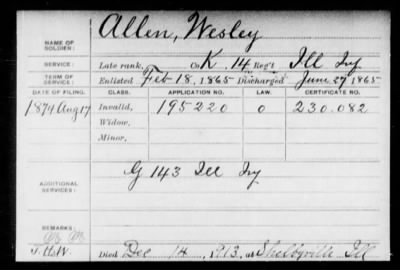 Allen, Wesley
NAME OF SOLDIER:
SERVICE: Late rank, Co. K, 14 Reg't Ill Inf
TERM OF SERVICE: Enlisted Feb 18, 1865 Discharged June 27, 1865
DATE OF FILING. CLASS. APPLICATION NO. LAW. CERTIFICATE NO.
1879 Aug 17 Invalid, 195220 0 230.082
Widow,
Minor,
G 143 Ill Inf
ADDITIONAL SERVICES:
REMARKS:
Died Dec 14, 1913, at Shelbyville Ill